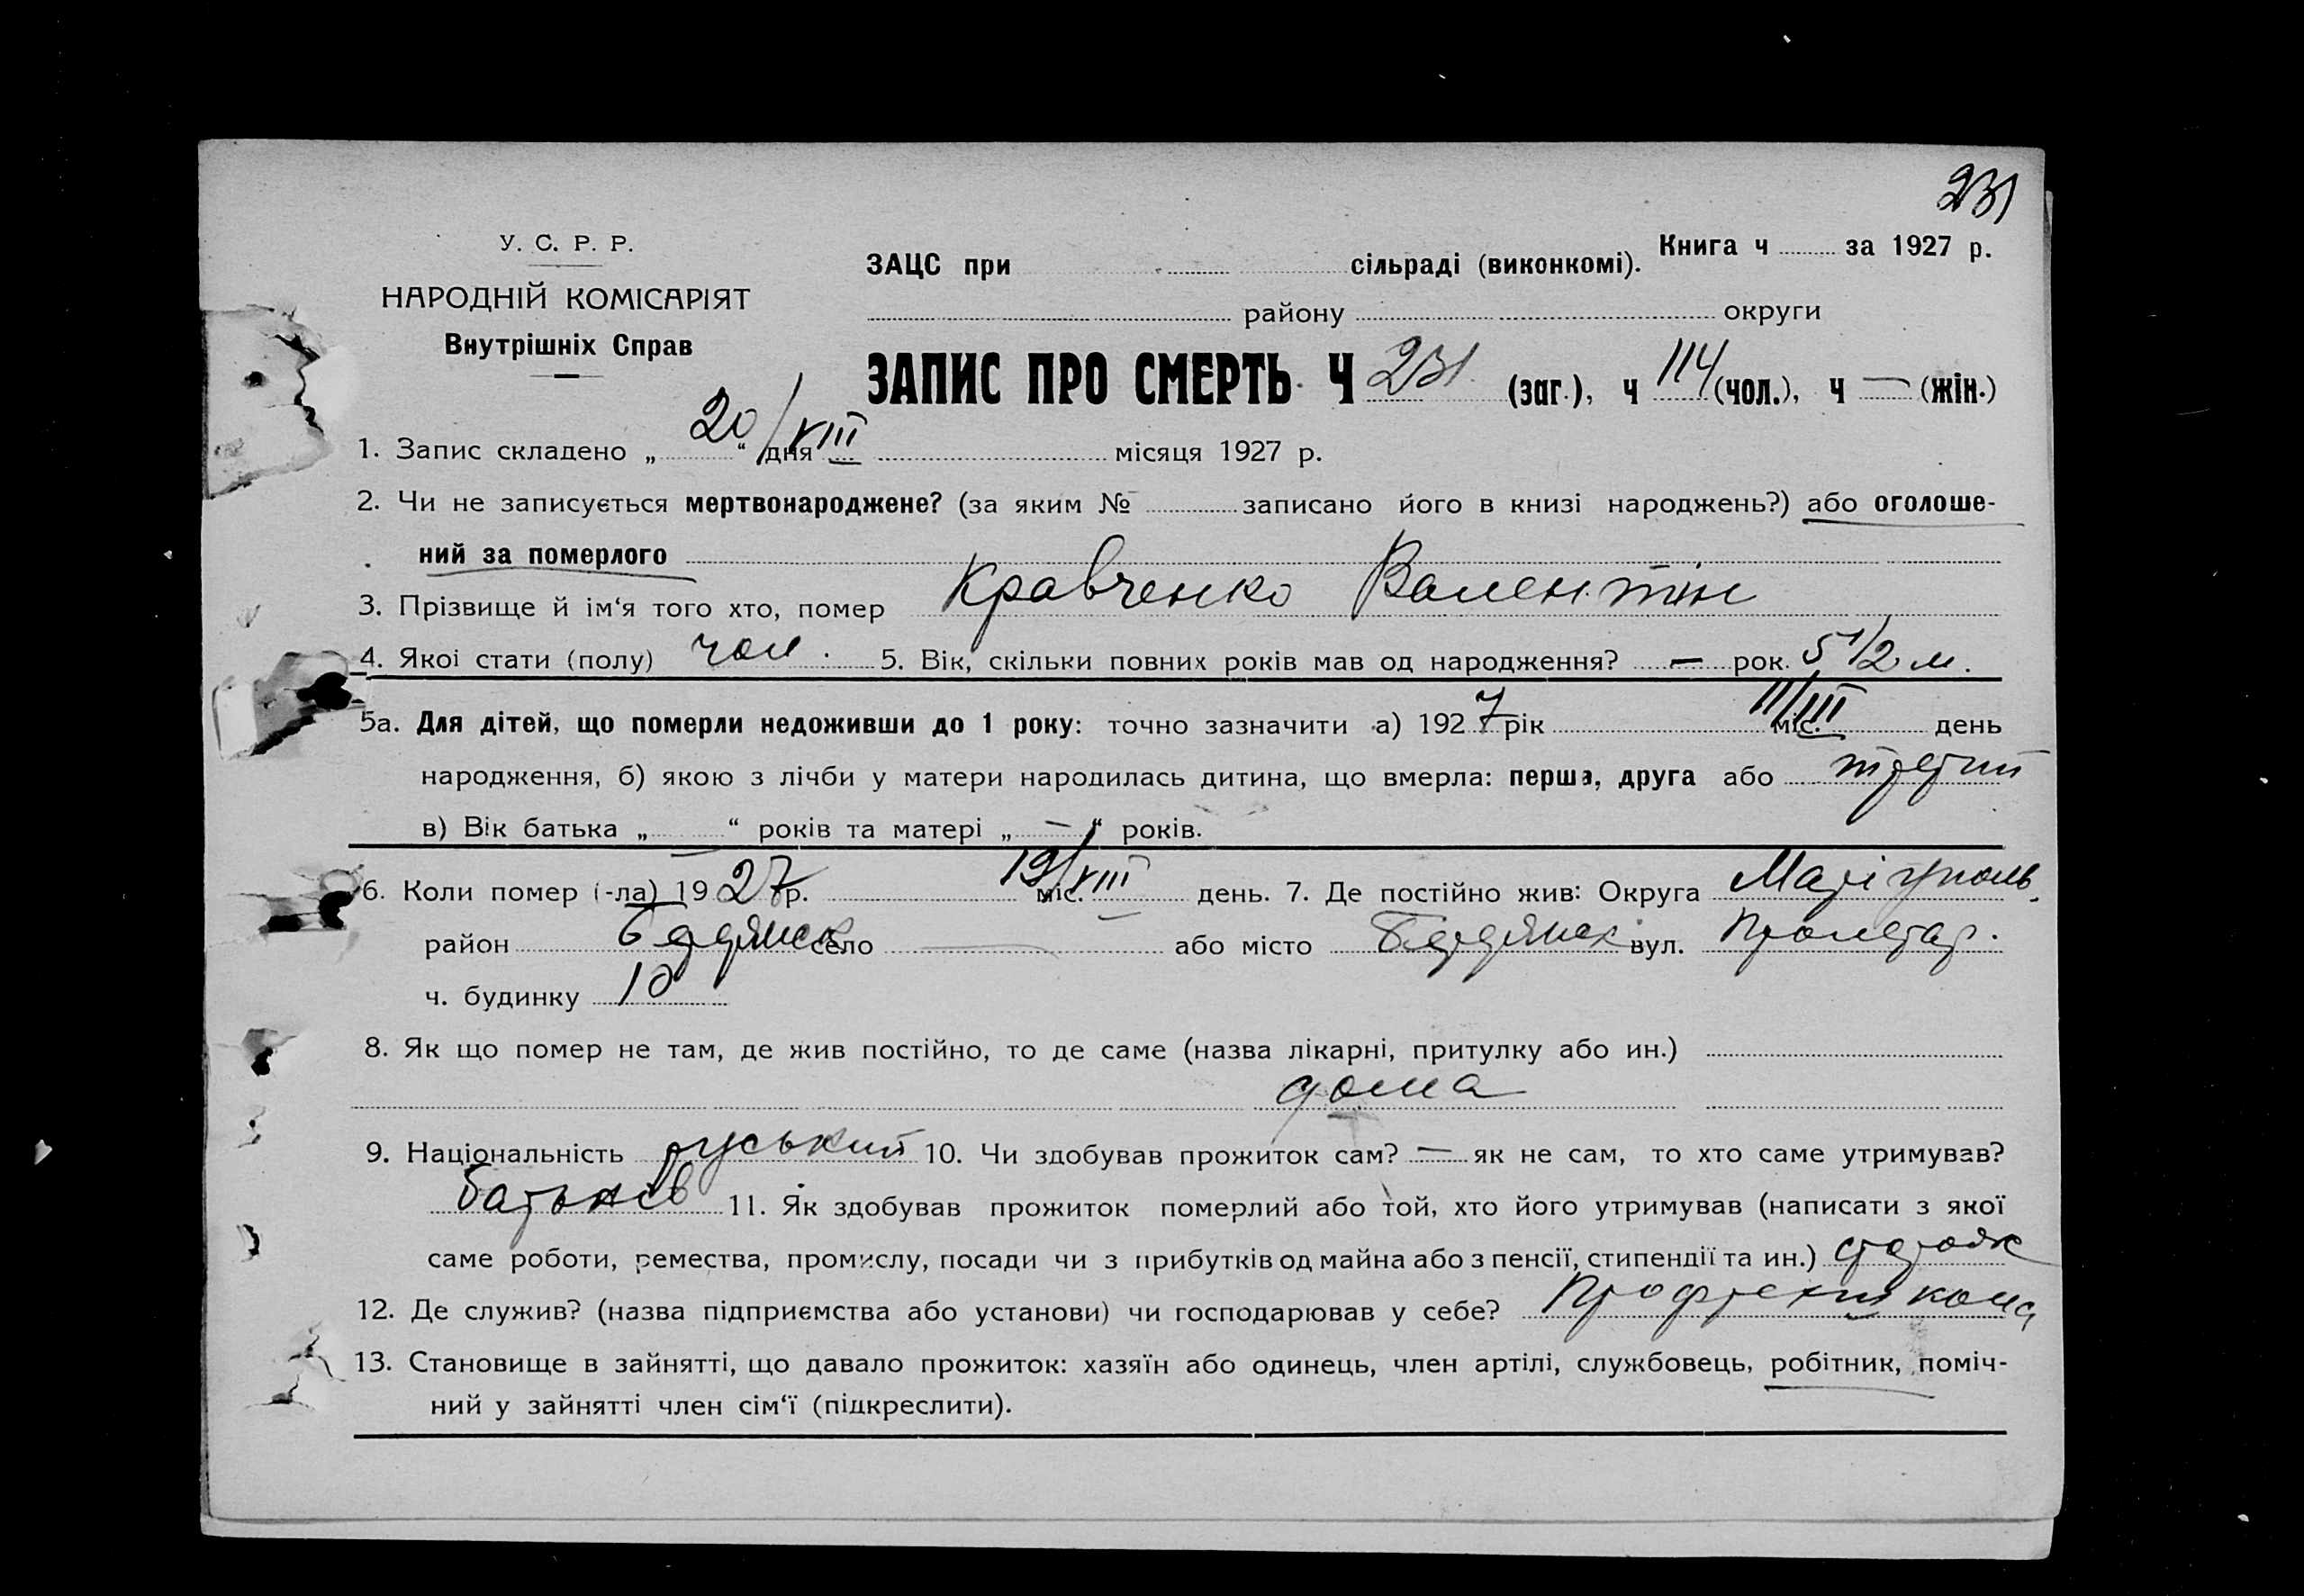 231
У. С. Р. Р.
НАРОДНІЙ КОМІСАРІЯТ
Внутрішніх Справ
ЗАЦС при сільраді (виконкомі). Книга ч за 1927 р.
району округи
ЗАПИС ПРО СМЕРТЬ Ч 231 (заг.), ч 114 (чол.), ч — (жін.)
1. Запис складено „ 20/VIII “ дня місяця 1927 р.
2. Чи не записується мертвонароджене? (за яким № записано його в книзі народжень?) або оголоше-
ний за померлого
3. Прізвище й ім‘я того хто, помер Кравченко Валентін
4. Якої стати (полу) чол. 5. Вік, скільки повних років мав од народження? — рок. 5 1/2 м.
5а. Для дітей, що померли недоживши до 1 року: точно зазначити а) 1927 рік 11/III міс. день
народження, б) якою з лічби у матери народилась дитина, що вмерла: перша, друга або третий
в) Вік батька „ — “ років та матері „ — “ років.
6. Коли помер (-ла) 1927 р. 19/VIII міс. день. 7. Де постійно жив: Округа Маріуполь.
район Бердянськ село — або місто Бердянск вул. Пролетар.
ч. будинку 10
8. Як що помер не там, де жив постійно, то де саме (назва лікарні, притулку або ин.)
дома
9. Національність руський 10. Чи здобував прожиток сам? — як не сам, то хто саме утримував?
батьків 11. Як здобував прожиток померлий або той, хто його утримував (написати з якої
саме роботи, ремества, промислу, посади чи з прибутків од майна або з пенсії, стипендії та ин.)
12. Де служив? (назва підприємства або установи) чи господарював у себе?
13. Становище в зайнятті, що давало прожиток: хазяїн або одинець, член артілі, службовець, робітник, поміч-
ний у зайнятті член сім‘ї (підкреслити).